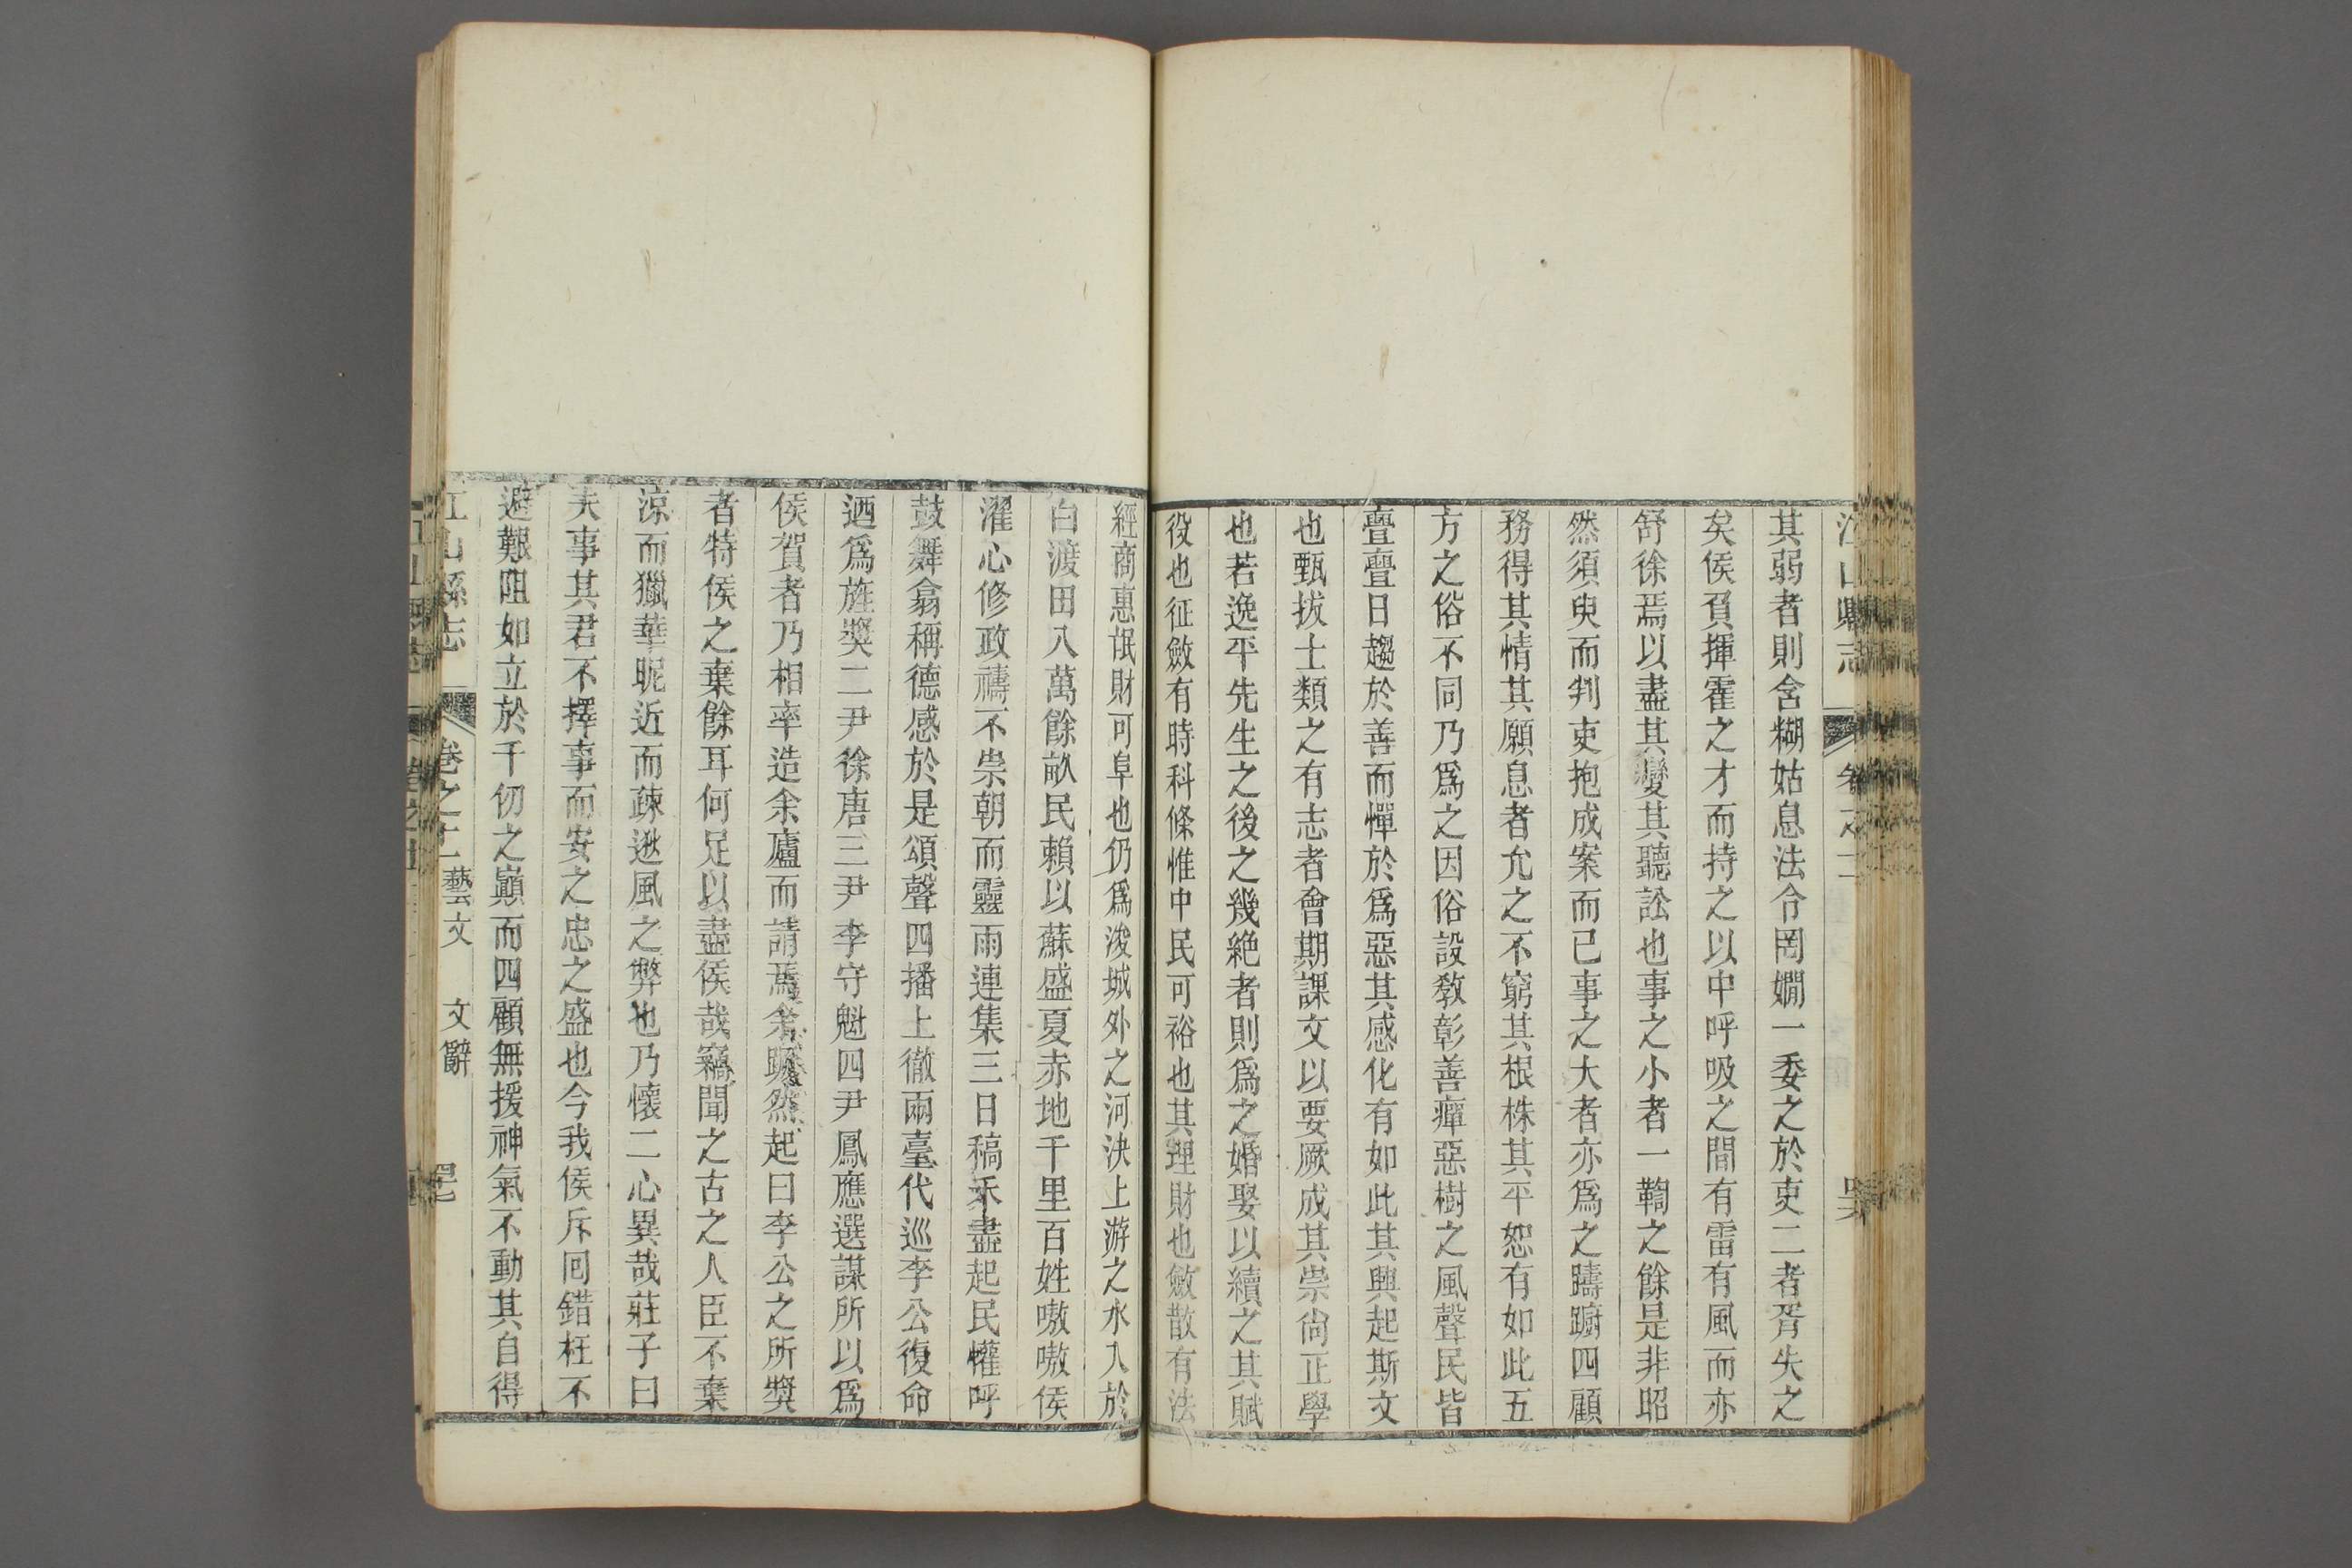 其弱者則含糊姑息法令罔嫺一委之於吏二者胥失之
矣侯負揮霍之才而持之以中呼吸之間有雷有風而亦
舒徐焉以盡其變其聽訟也事之小者一鞫之餘是非昭
然須臾而判吏抱成案而已事之大者亦爲之躊躕四顧
務得其情其願息者允之不窮其根株其平恕有如此五
方之俗不同乃爲之因俗設敎彰善癉惡樹之風聲民皆
亹亹日趨於善而憚於爲惡其感化有如此其興起斯文
也甄拔士類之有志者會期課文以要厥成其崇尙正學
也若逸平先生之後之幾絶者則爲之婚娶以續之其賦
役也征斂有時科條惟中民可裕也其理財也斂散有法
經商惠氓財可阜也仍爲浚城外之河決上游之水入於
白渡田八萬餘畝民賴以蘇盛夏赤地千里百姓嗷嗷侯
濯心修政禱不祟朝而靈雨連集三日稿禾盡起民懽呼
鼓舞翕稱德感於是頌聲四播上徹兩臺代巡李公復命
迺爲旌獎二尹徐唐三尹李守魁四尹鳳應選謀所以爲
侯賀者乃相率造余廬而請焉余 然起曰李公之所獎
者特侯之棄餘耳何足以盡侯哉竊聞之古之人臣不棄
凉而獵華昵近而疎逖風之弊也乃懷二心異哉莊子曰
夫事其君不擇事而安之忠之盛也今我侯斥囘錯枉不
避艱阻如立於千仞之巔而四顧無援神氣不動其自得
江山縣志 卷之十一藝文 文辭 四七